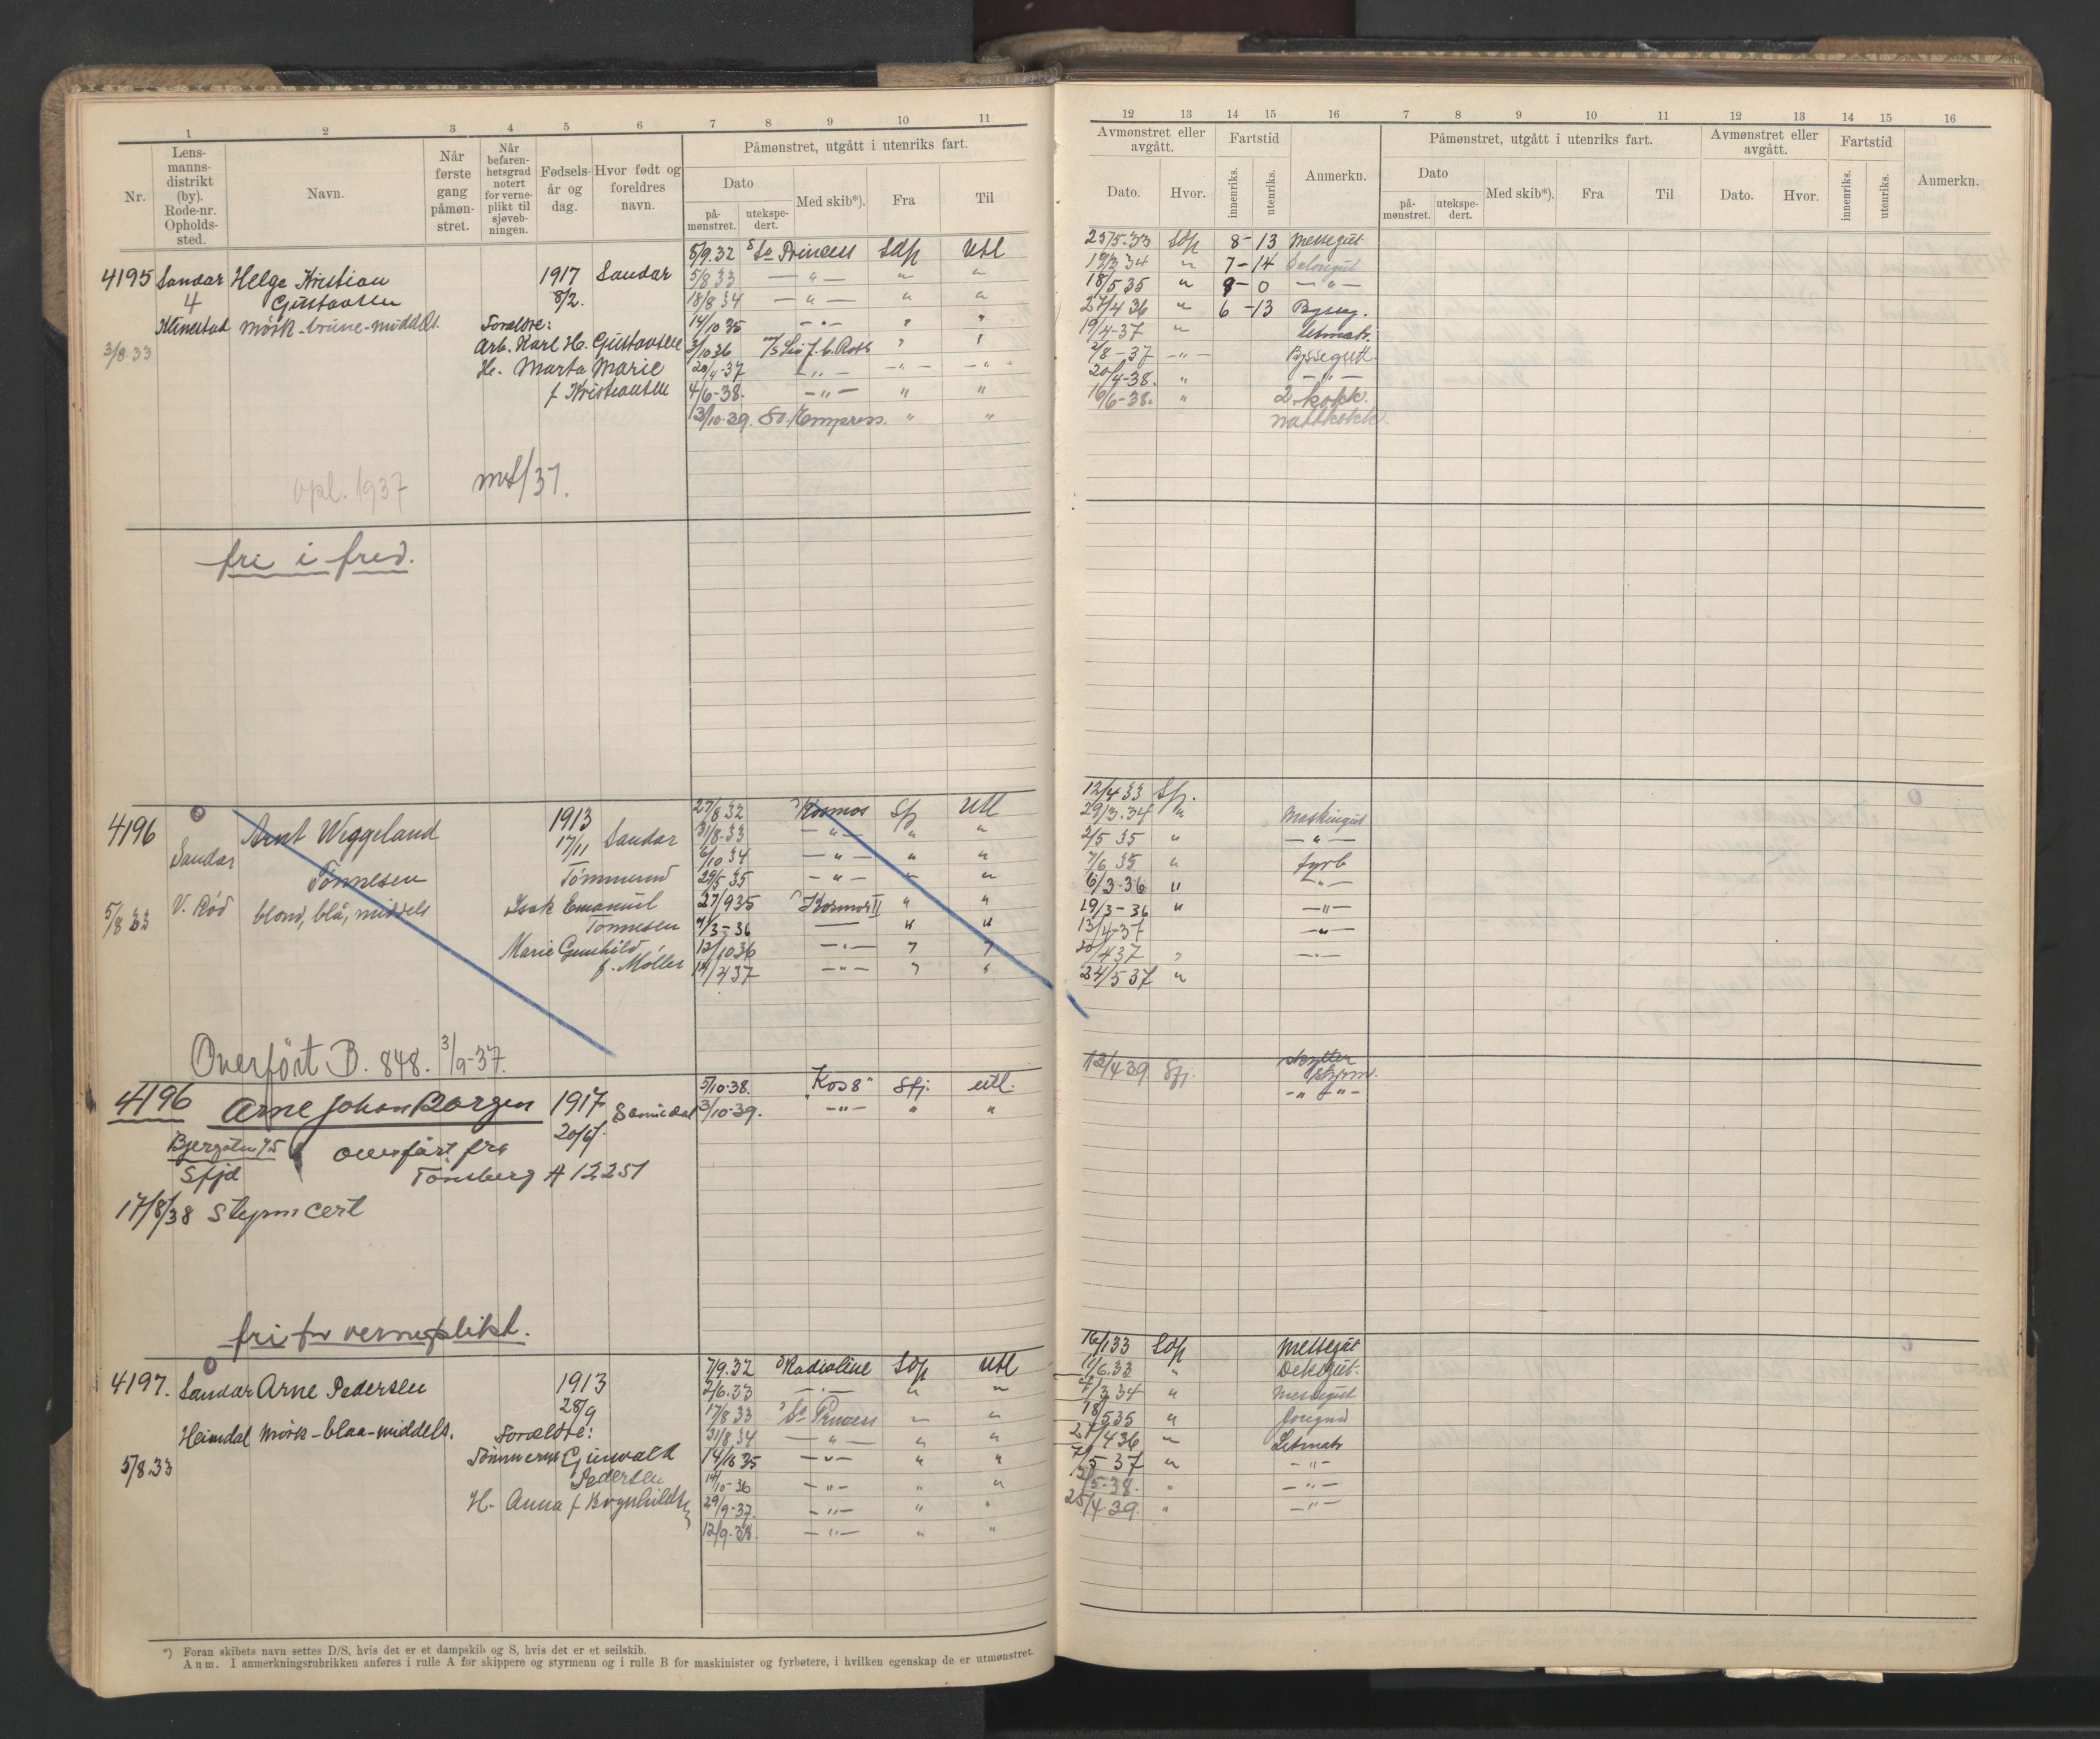 1 2 3 4 5 6 7 8 9 10 11
Nr.
Lens-
manns-
distrikt
(by).
Rode-nr.
Opholds-
sted.
Navn.
Når
første
gang
påmøn-
stret.
Når
befaren-
hetsgrad
notert
for verne-
plikt til
sjøveb-
ningen.
Fødsels-
år og
dag.
Hvor født og
foreldres
navn.
Påmønstret, utgått i utenriks fart.
Dato
på-
mønstret.
utekspe-
dert.
Med skib*).
Fra
Til
4195 Sandar Helge Kristian 1917 Sandar
4 Gustavsen 8/2.
Klinestad mörk-brune-middels. Foreldre:
3/8.33 Arb. Karl H. Gustavsen
H. Marta Marie
f Kristiansen
8/9.32 So Princess Sdfj Utl
5/8 33 — " — " "
18/8 34 — " — " "
14/10 35 — " — " "
3/10 36
20/4-37 — " — — " — — " —
4/6-38. — " — " "
13/10-39. So. Empress. " "
opl. 1937 mst/37.
fri i fred.
4196 Arnt Wiggeland 1913
Sandar Tönnesen 17/11 Sandar
Tömmermd
5/8 33 V. Rød blond, blå, middels Isak Emanuel
Tönnesen
Marie Gunhild,
f. Møller
27/8 32 Kosmos Sfj Utl
31/8.33 — " — " "
6/10 34 — " — " "
29/5 35 — " — " "
27/9 35 Kosmos II " "
7/3-36 — " "
12/10 36 — " — " "
14/4 37 — " — " "
Overfört B. 848. 3/9-37.
4196 Arne Johan Borgen 1917 Semedal
20/6
Bjergaten 75 overfört fra
Sfjd Tönsberg A 12251
17/8/38 Styrmcert
5/10-38. "Kos 8" Sfj. utl.
3/10-39. — " — " "
fri for verneplikt.
4197. Sandar Arne Pedersen 1913
28/9
Heimdal mörk-blaa-middels. Foreldre:
5/8 33 Tömmerm Gunvald
Pedersen
H. Anna f
7/9.32 Radioline Sdfj Utl
2/6.33 — " — " "
17/8 33 So Princess " "
31/8 34 — " — " "
14/10 35 — " — " "
14/10-36 — " — " "
29/9-37. — " — " "
12/9-38. — " — " "
*) Foran skibets navn settes D/S, hvis det er et dampskib og S, hvis det er et seilskib.
Anm. I anmerkningsrubrikken anføres i rulle A for skippere og styrmenn og i rulle B for maskinister og fyrbøtere, i hvilken egenskap de er utmønstret.
12 13 14 15 16 7 8 9 10 11 12 13 14 15 16
Avmønstret eller
avgått.
Dato.
Hvor.
Fartstid
innenriks.
utenriks.
Anmerkn.
Påmønstret, utgått i utenriks fart.
Dato
på-
mønstret.
utekspe-
dert.
Med skib*).
Fra
Til
Avmønstret eller
avgått.
Dato.
Hvor.
Fartstid
innenriks.
utenriks.
Anmerkn.
25/5.33 Sdfj 8-13 Messegut
19/3 34 " 7-14 Salongut
18/5 35 " 9-0 — " —
27/4 36 " 6-13 Bysseg.
19/4-37 " Letmatr.
2/8-37 — " — Byssegutt.
20/4-38. " — " —
16/6-38. " 2. kokk.
nattkokk.
12/4 33 Sfj.
29/3.34 " Maskingut
2/5 35 " — " —
7/6 35 " fyrb
6/3-36 " — " —
19/3-36 " — " —
13/4-37 — " —
20/4 37 " — " —
24/5 37 "
12/4 39 Sfj. skytter
styrm.
— " — " —
16/1 33 Sdfj Messegut
11/6.33 " Deksgut
4/3 34 " Messegut
18/5 35 " Jungmd
27/4 36 " Letmatr
7/5 37 " — " —
13/5-38. " — " —
25/4 39. " — " —